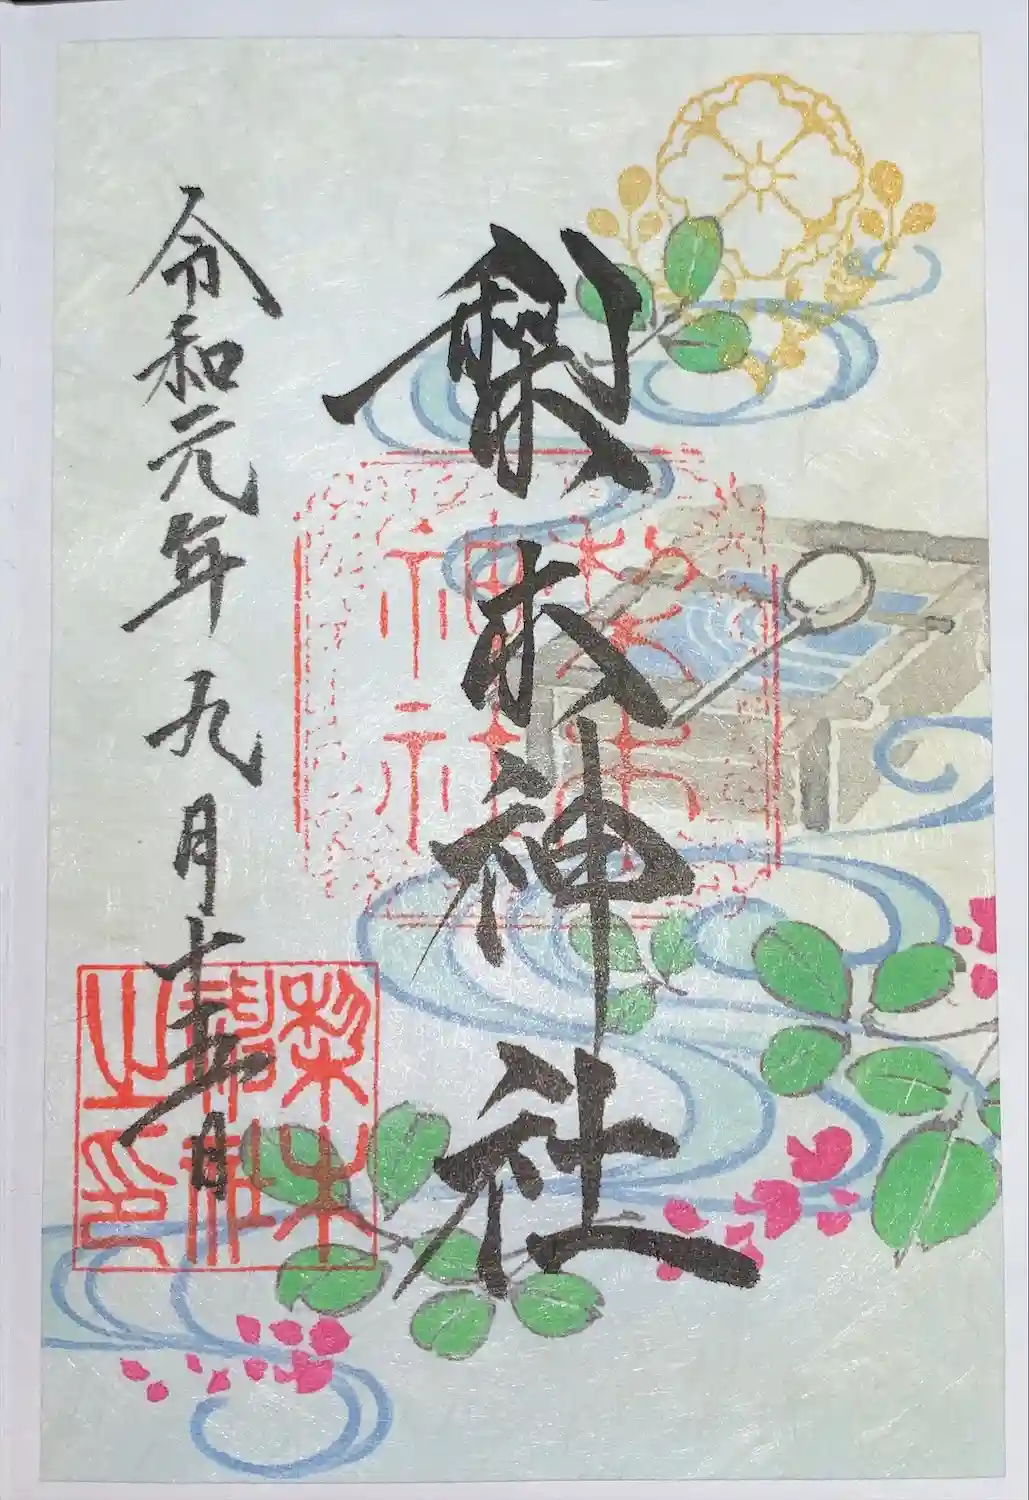 梨木神社
梨木
神社
令和元年九月十五日
梨木
神社
之印